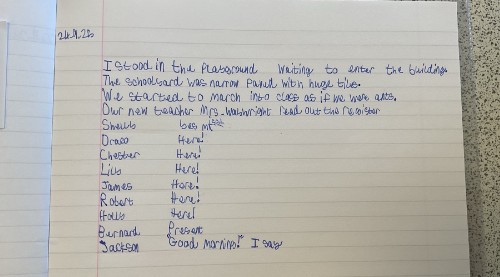 24.9.25
I stood in the Playground waiting to enter the building.
The schoolyard was narrow Paned with huge tiles.
We started to march into class as if we were ants.
Our new teacher Mrs. Wainwright read out the register
Yes
Draco Here!
Chester Here!
Here!
James Here!
Robert Here!
Holly Here!
Bernard Present
Jackson "Good morning!" I say